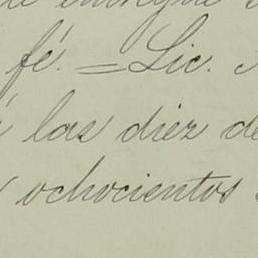 fé. = Lic.
á las diez de
ochocientos